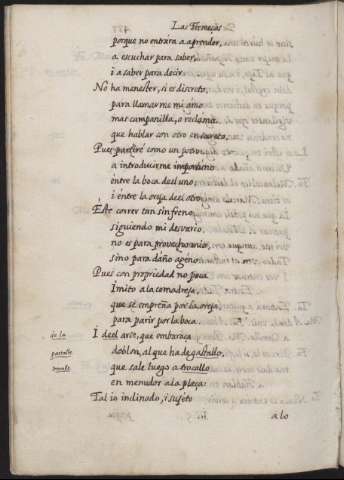 Las Firmeças
porque no entrára a aprender,
a escuchar para saber,
i a saber para decir.
No ha menester, si es discreto,
para llamarme mi amo
mas campanilla, o reclamo
que hablar con otro en secreto,
Pues partiré como un potro
a introducirme importuno
entre la boca del uno,
i entre la oreja del otro.
Éste correr tan sin freno,
siguiendo mi desvarío,
no es para provecho mio,
sino para daño ageno.
Pues con propriedad no poca
Ímito a la comadreja,
que se empreña por la oreja
para parir por la boca.
de la
Í del arte, que embaraça
doblon, al que ha de gastallo,
que sale luego a trocallo
en menudos a la plaça:
Tal io inclinado, i sujeto
a lo